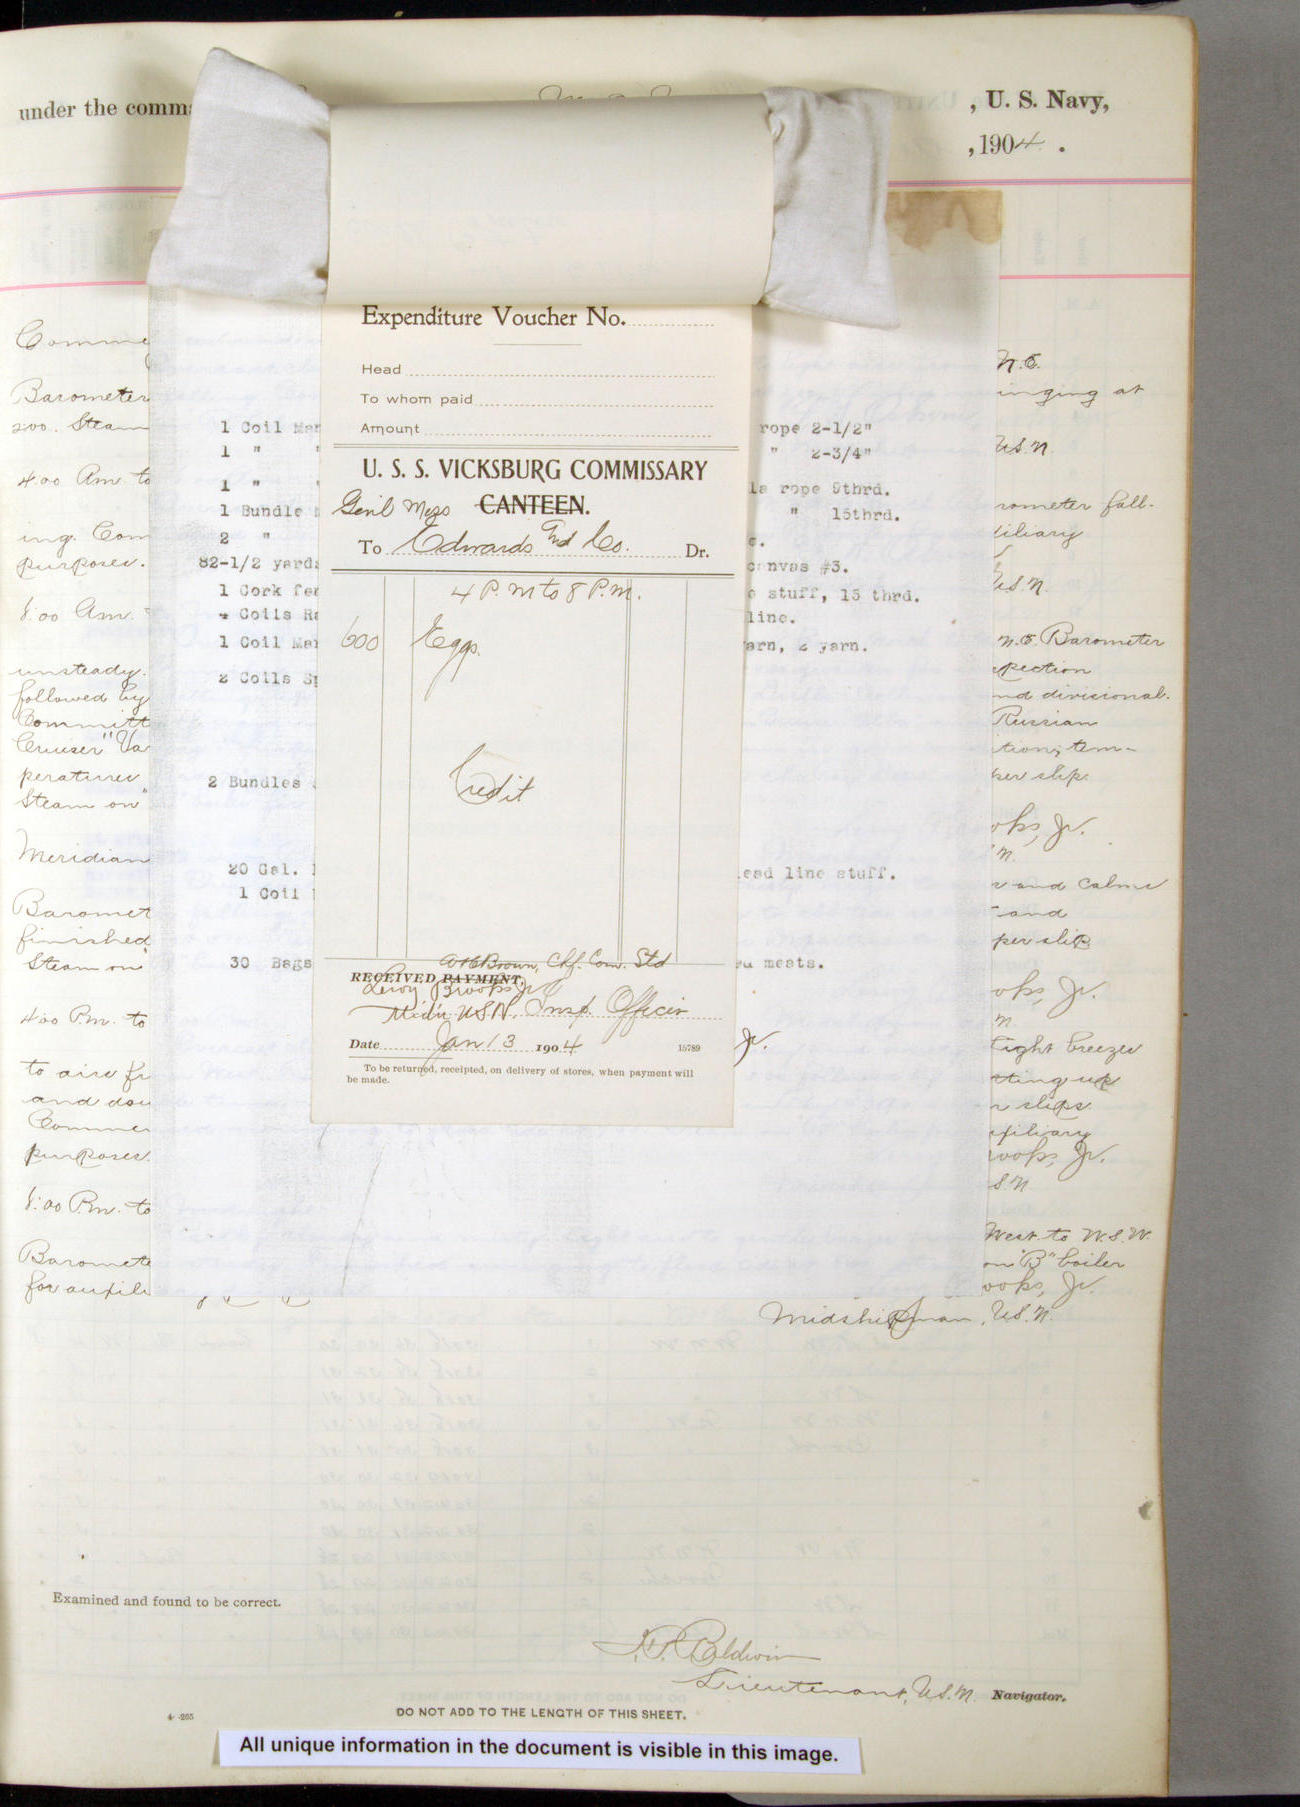 under the comma
, U. S. Navy,
, 1904 .
Expenditure Voucher No.
Head
To whom paid
Amount
U. S. S. VICKSBURG COMMISSARY
Genl Mess CANTEEN.
To Edwards and Co. Dr.
4 P.M to 8 P.M.
600 Eggs.
Credit
Chf. Com. Std
RECEIVED PAYMENT.
Leroy Brooks Jr
Mid'n USN. Insp. Officer
Date Jan 13 1904 15789
To be returned, receipted, on delivery of stores, when payment will
be made.
1 Coil Man
rope 2-1/2"
1 "
" 2-3/4"
1 "
la rope 9thrd.
1 Bundle
" 15thrd.
2 "
82-1/2 yards
canvas #3.
1 Cork fen
stuff, 15 thrd.
4 Coils Ra
line.
1 Coil Mar
arn, 2 yarn.
2 Coils Sp
2 Bundles
20 Gal.
lead line stuff.
1 Coil
30 Bags
meats.
Jr.
Comme
N.E.
Barometer
inging at
200. Steam
U.S.N.
4:00 Am to
rometer fall-
ing. Com
iliary
purposes.
U.S.N.
8:00 Am.
N.E. Barometer
unsteady.
pection
followed by
nd divisional.
Committ
Russian
Cruiser "Va
ition; tem-
peratures
per slip.
Steam on
oks, Jr.
Meridian
N.
and calms
Baromet
and
finished
per slip
Steam on
oks, Jr.
4:00 P.m. to
N.
Light breezes
to airs fr
tting up
and dou
r slips.
Comme
xiliary
purposes.
rooks, Jr.
S.N
8:00 P.m. to
West to W.S.W.
Baromete
on "B" boiler
for auxili
ooks, Jr.
Midshipman, U.S.N.
Examined and found to be correct.
Baldwin
Lieutenant, U.S.N. Navigator.
DO NOT ADD TO THE LENGTH OF THIS SHEET.
All unique information in the document is visible in this image.